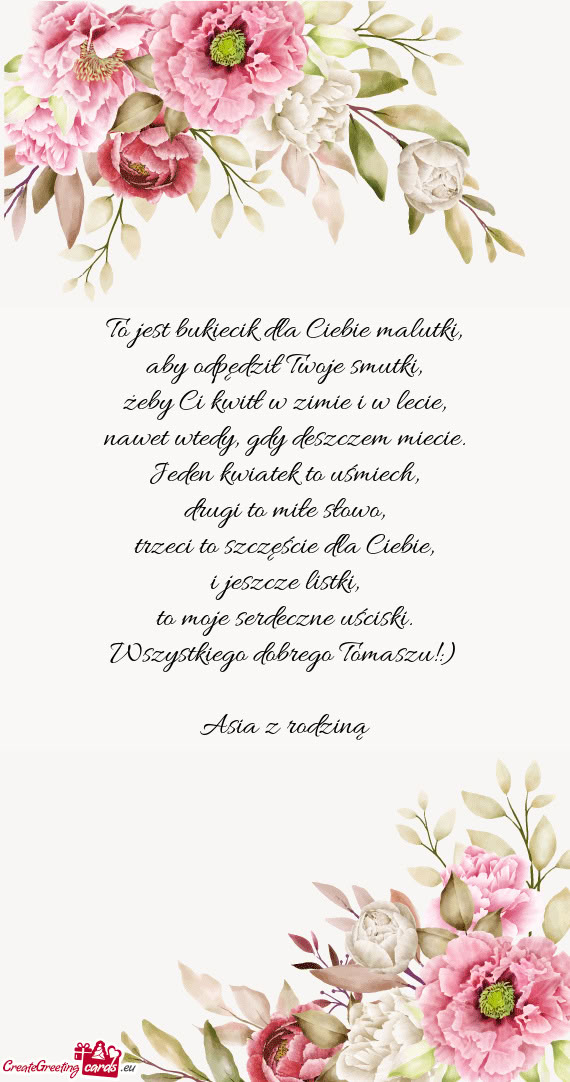 To jest bukiecik dla Ciebie malutki,
aby odpędził Twoje smutki,
żeby Ci kwitł w zimie i w lecie,
nawet wtedy, gdy deszczem miecie.
Jeden kwiatek to uśmiech,
drugi to miłe słowo,
trzeci to szczęście dla Ciebie,
i jeszcze listki,
to moje serdeczne uściski.
Wszystkiego dobrego Tomaszu!:)
Asia z rodziną
CreateGreeting cards .eu